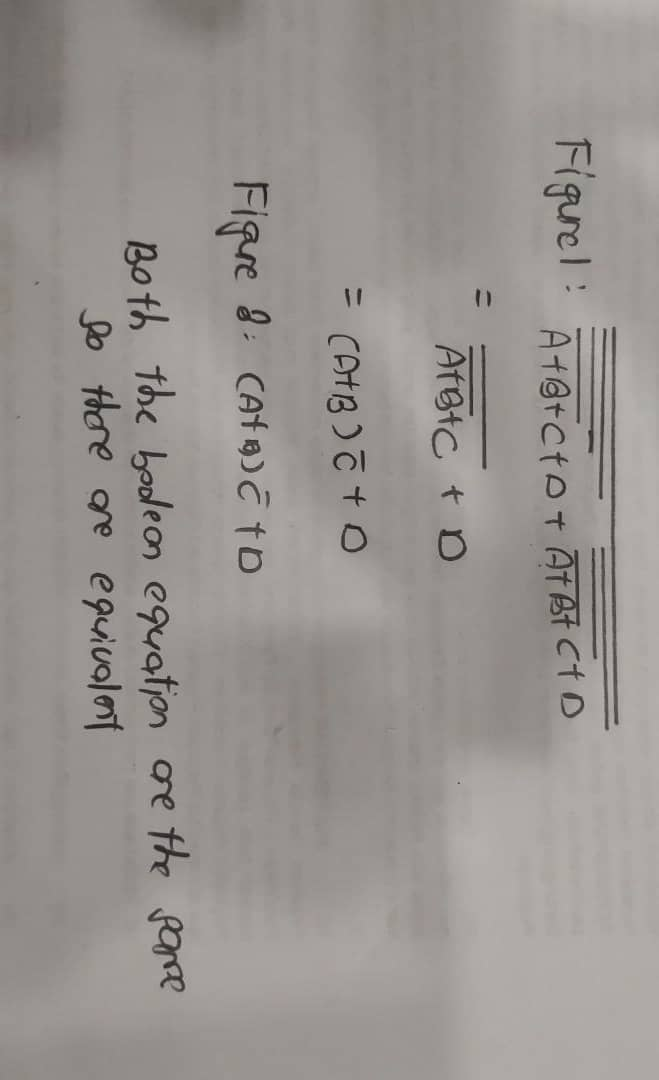 Figure1: \overline{\overline{\overline{\overline{A+B}+C}+D}+\overline{\overline{\overline{A+B}+C}+D}}
= \overline{\overline{A+B}+C} + D
= (A+B) C̄ + D
Figure 2: (A+B) C̄ + D
Both the boolean equation are the same
so there are equivalent